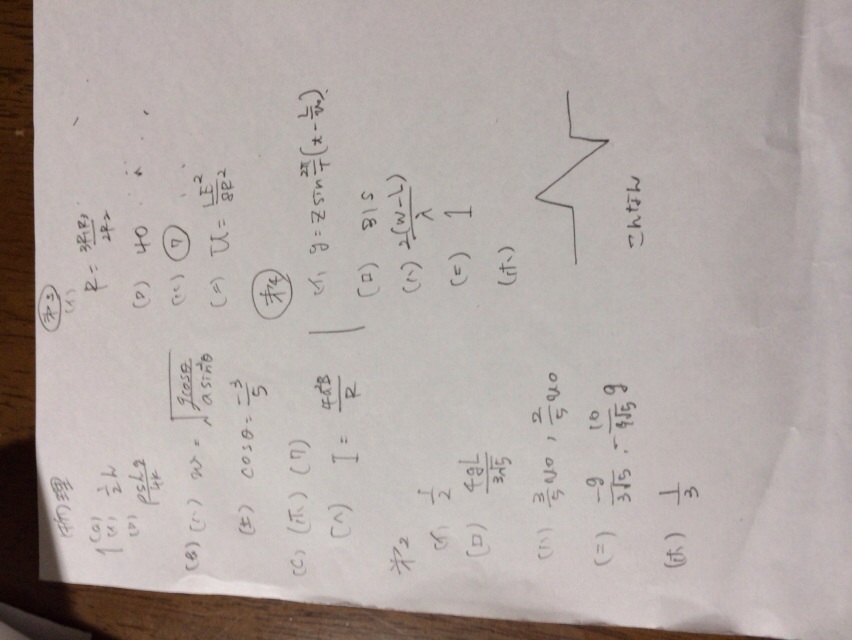 物理
1(a) (イ) 1/2 h
(ロ) ρshg/4k
(B) (ハ) w = √(gcosθ/asin²θ)
(ニ) cosθ = -3/5
(C) (ホ) (ワ)
(ヘ) I = 4a²B/R
第2
(イ) 1/2
(ロ) 4gL/3√5
(ハ) 3/5 v0, 2/5 v0
(ニ) -g/3√5, -10/9√5 g
(ホ) 1/3
第3
(イ) R = 3R1R2/2R2
(ロ) 40
(ハ) ⑦
(ニ) U = LE²/8R²
第4
(イ) y = 2 sin 2π/T (t - L/v0)
(ロ) 315
(ハ) 2(W-L)/λ
(ニ) 1
(ホ)
こんなん